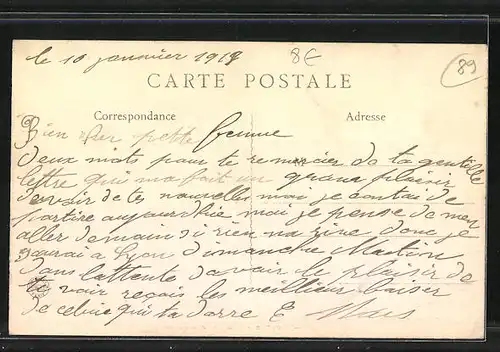 le 10 janvier 1919
8E
89
CARTE POSTALE
Correspondance
Adresse
Bien cher petite femme
deux mots pour te remercier de ta gentille
lettre qui ma fait un grand plaisir
davoir de tes nouvelles moi je contai de
partire aujourdhui moi je pense de men
aller demain si rien na rive donc je
saurai a Lyon dimanche Matin
dans lattente davoir le plaisir de
te voir reçois les meilleur baiser
de celui qui ta dorre E